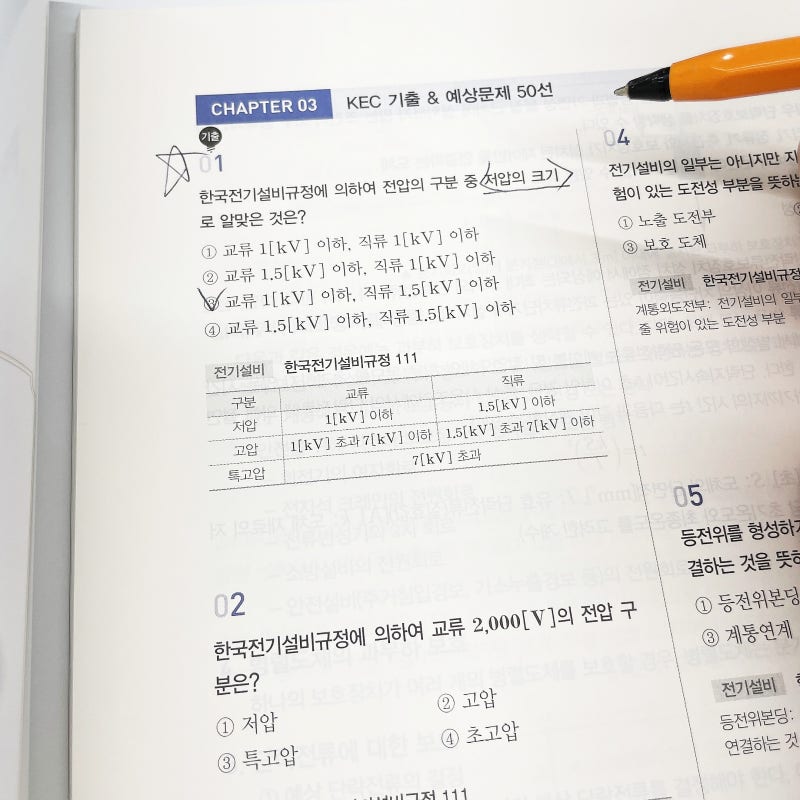 CHAPTER 03 KEC 기출 & 예상문제 50선
기출
01
한국전기설비규정에 의하여 전압의 구분 중 저압의 크기
로 알맞은 것은?
① 교류 1[kV] 이하, 직류 1[kV] 이하
② 교류 1.5[kV] 이하, 직류 1[kV] 이하
③ 교류 1[kV] 이하, 직류 1.5[kV] 이하
④ 교류 1.5[kV] 이하, 직류 1.5[kV] 이하
전기설비 한국전기설비규정 111
구분 교류 직류
저압 1[kV] 이하 1.5[kV] 이하
고압 1[kV] 초과 7[kV] 이하 1.5[kV] 초과 7[kV] 이하
특고압 7[kV] 초과
02
한국전기설비규정에 의하여 교류 2,000[V]의 전압 구
분은?
① 저압 ② 고압
③ 특고압 ④ 초고압
111
04
전기설비의 일부는 아니지만 지
험이 있는 도전성 부분을 뜻하는
① 노출 도전부
③ 보호 도체
전기설비 한국전기설비규정
계통외도전부: 전기설비의 일부
줄 위험이 있는 도전성 부분
05
등전위를 형성하기
결하는 것을 뜻하
① 등전위본딩
③ 계통연계
전기설비
등전위본딩:
연결하는 것